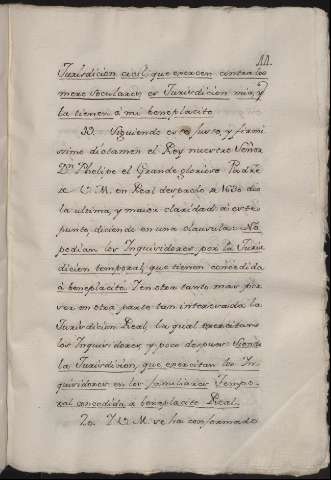 11.
Jurisdicion civil, que exercen contra los
mere seculares, es Jurisdicion mia, y
la tienen á mi beneplacito
Siguiendo este justo, y firmi
simo dictamen el Rey nuestro Señor
Dn. Phelipe el Grande glorioso Padre
de V. M. en Real despacho de 1630 dio
la ultima, y maior claridad á este
punto, diciendo en una clausula: No
pedian los Inquisidores por la Juris
dicion temporal, que tienen concedida
á beneplacito. Y en otra
ver en otra parte tan interesada la
Jurisdicion Real, la qual exercitan
los Inquisidores, y poco despues: Siendo
la Jurisdicion, que exercitan los In
quisidores en los familiares Tempo
ral concedida á beneplacito Real.
V. M. se ha conformado